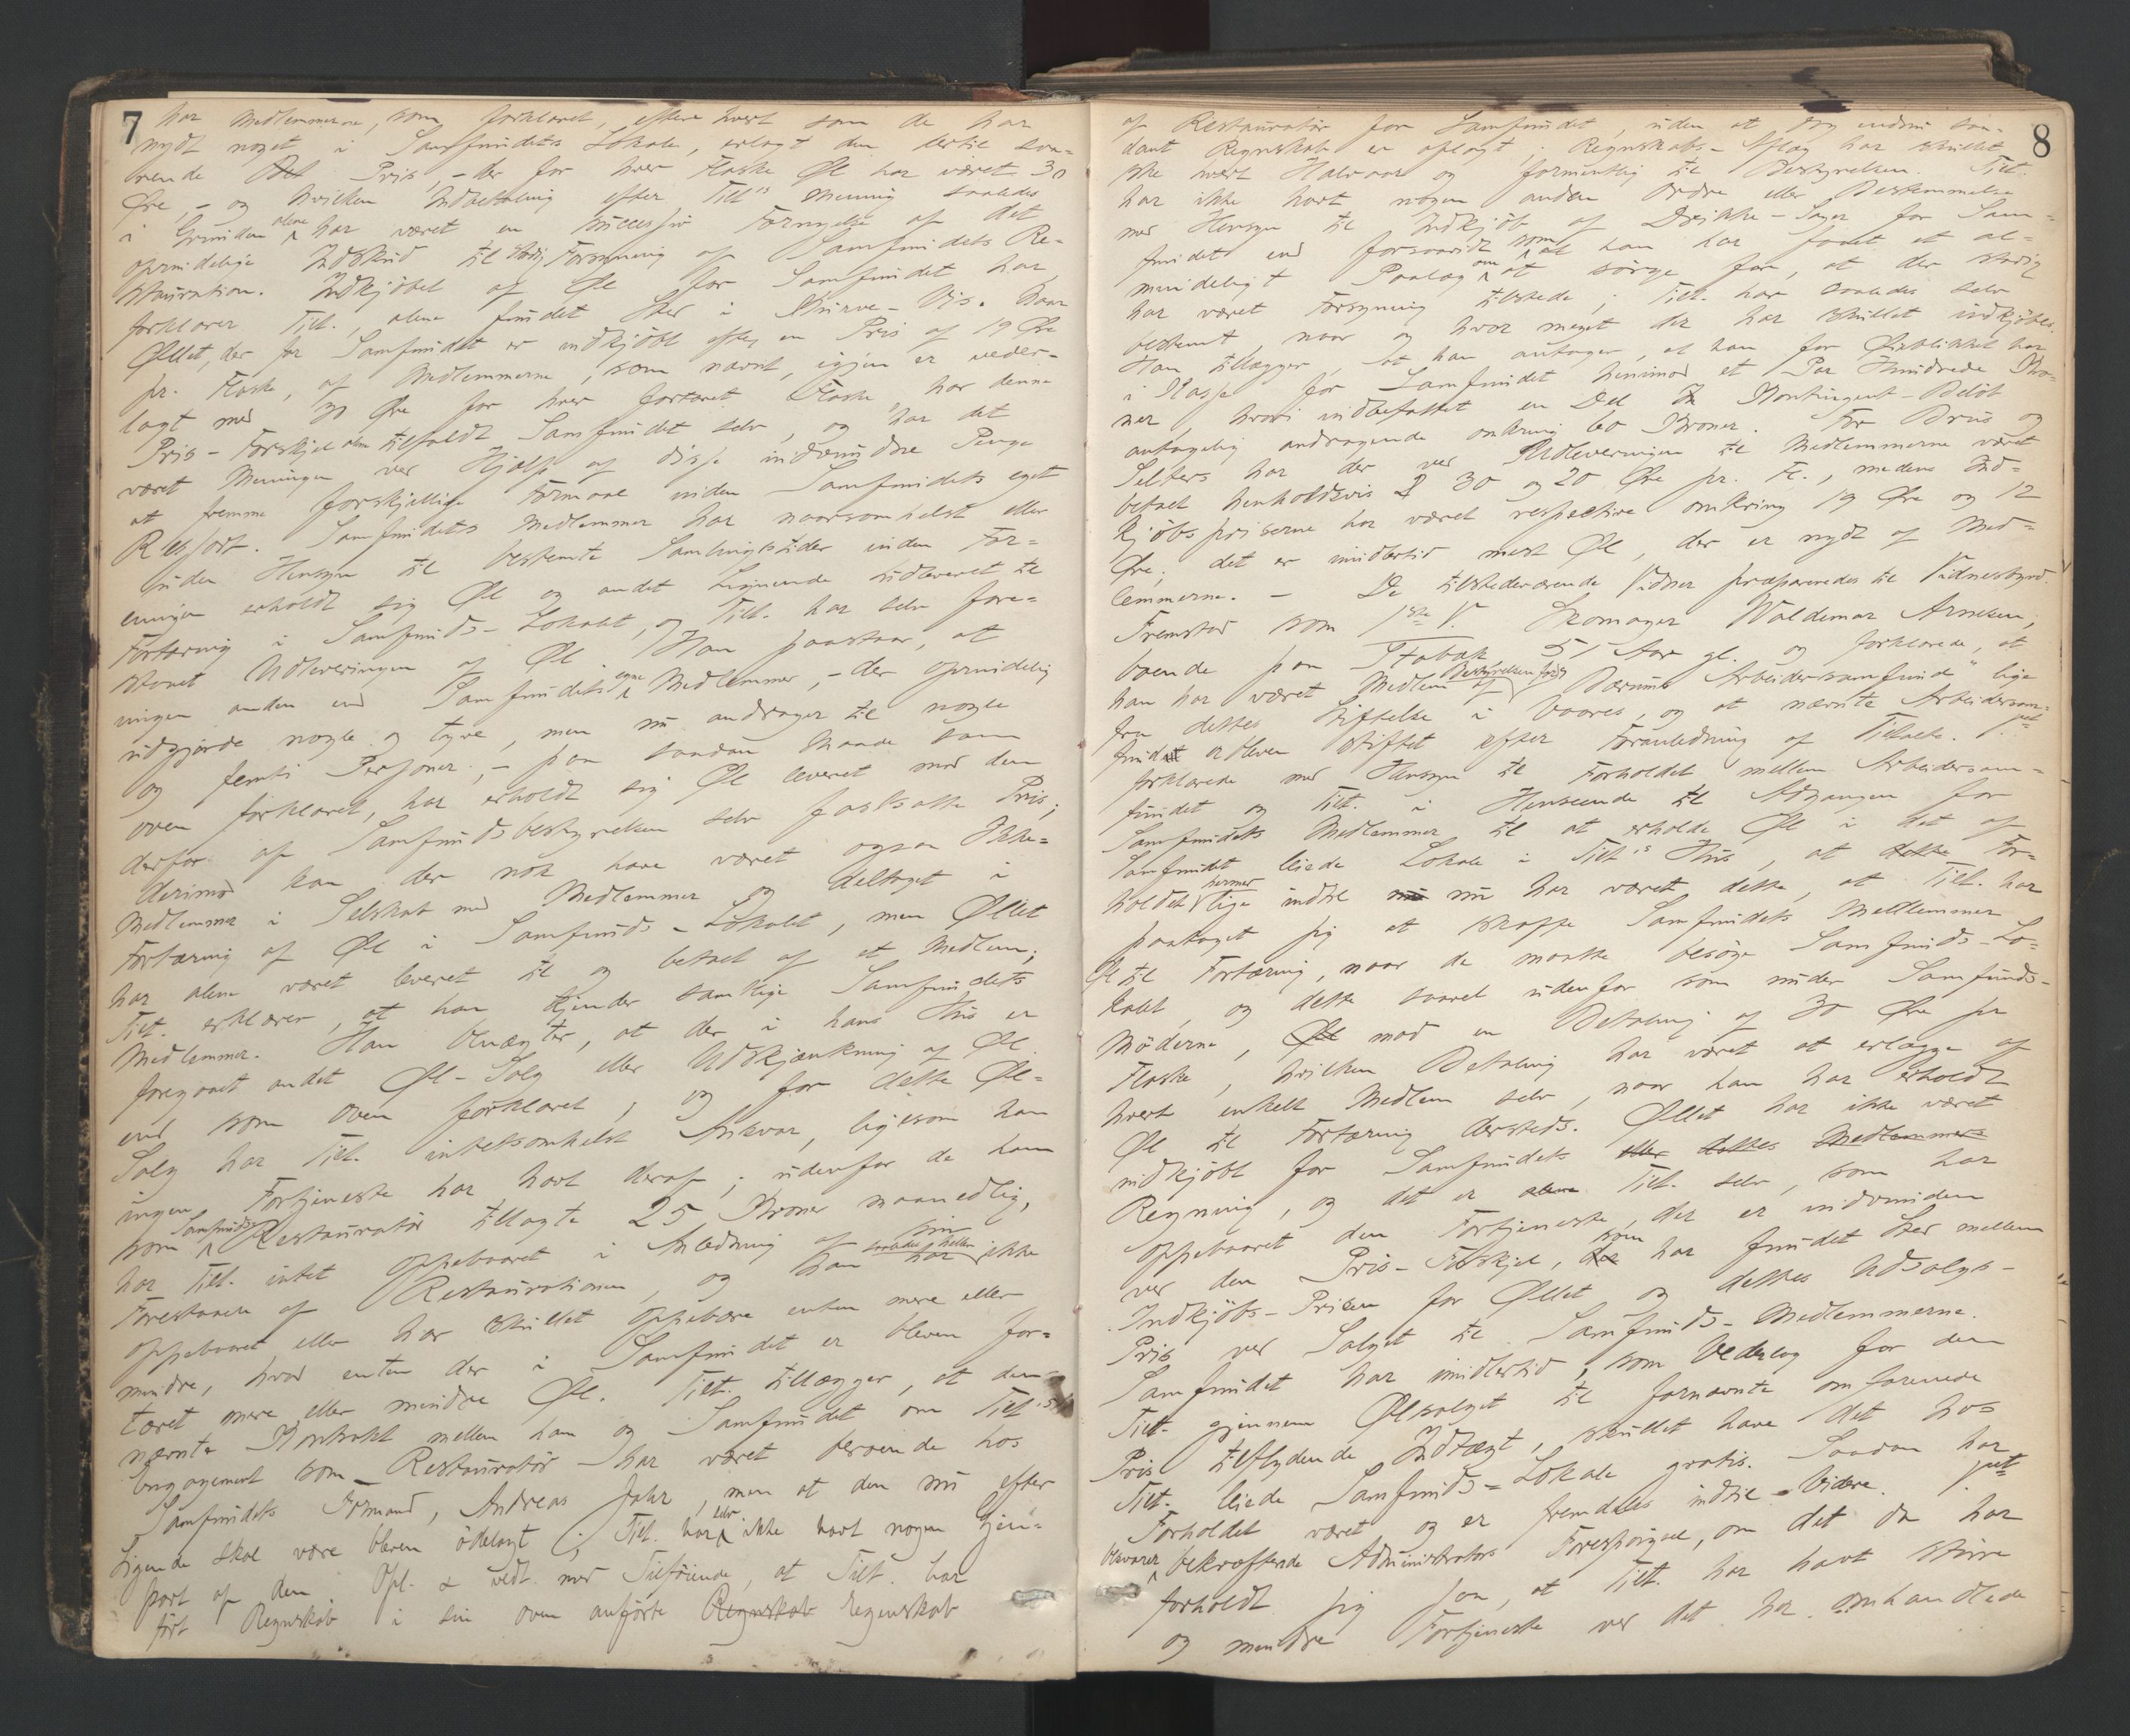 7
har Medlemmerne, som forklaret, efterhvert som de har
nydt noget i Samfundets Lokale, erlagt den dertil sva-
rende Pris, - der for hver Flaske Øl har været 30
Øre, - og hvilken Indbetaling efter Tilt's Mening saaledes
i Grunden alene har været en successiv Fornyelse af det
oprindelige Indskud til stadig Forsyning af Samfundets Re-
stauration. Indkjøbet af Øl for Samfundet har,
forklarer Tilt., alene fundet Sted i Kurve-Vis. Naar
Øllet, der for Samfundet er indkjøbt efter en Pris af 19 Øre
pr. Flaske, af Medlemmerne, som nævnt, igjen er veder-
lagt med 30 Øre for hver fortæret Flaske har denne
Pris-Forskjel alene tilfaldt Samfundet selv, og har det
været Meningen ved Hjælp af disse indvundne Penge
at fremme forskjellige Formaal inden Samfundets eget
Ressort. Samfundets Medlemmer har naarsomhelst eller
uden Hensyn til bestemte Samlingstider inden For-
eningen erholdt sig Øl og andet Lignende udleveret til
Fortæring i Samfunds-Lokalet, og Tilt. har selv fore-
staaet Udleveringen af Øl. Han paastaar, at
ingen anden end Samfundets egne Medlemmer, - der oprindelig
udgjorde nogle og tyve, men nu andrager til nogle
og femti Personer, - paa saadan Maade som
oven forklaret, har erholdt sig Øl leveret mod den
derfor af Samfundsbestyrelsen selv fastsatte Pris;
derimod kan der nok have været ogsaa Ikke-
Medlemmer i Selskab med Medlemmer og deltaget i
Fortæring af Øl i Samfunds-Lokalet, men Øllet
har alene været leveret til og betalt af et Medlem;
Tilt. erklærer, at han kjender samtlige Samfundets
Medlemmer. Han benægter, at der i hans Hus er
foregaaet andet Øl-Salg eller Udskjænkning af Øl
end som oven forklaret, og for dette Øl-
Salg har Tilt. intetsomhelst Ansvar, ligesom han
ingen Fortjeneste har havt deraf; udenfor de ham
som Samfundets Restauratør tillagte 25 Kroner maanedlig,
har Tilt. intet oppebaaret i Anledning af sin
Forestaaen af Restaurationen, og han har saaledes heller ikke
oppebaaret eller har skullet oppebære enten mere eller
mindre, hvad enten der i Samfundet er bleven for-
tæret mere eller mindre Øl. Tilt. tillægger, at den
nævnte Kontrakt mellem ham og Samfundet om Tilt's
Engagement som Restauratør har været beroende hos
Samfundets Formand, Andreas Jahr, men at den nu efter
Sigende skal være bleven ødelagt; Tilt. har selv ikke havt nogen Gjen-
part af den. Opl. & vedt. med Tilføiende, at Tilt. har
ført Regnskab i sin oven anførte Regnskab Egenskab
8
af Restauratør for Samfundet, uden at dog endnu saa-
dant Regnskab er aflagt; Regnskabs-Aflæg har skullet
ske hvert Halvaar og formentlig til Bestyrelsen. Tilt.
har ikke havt nogen anden Ordre eller Bestemmelse
med Hensyn til Indkjøb af Drikke-Sager for Sam-
fundet end forsaavidt som at han har faaet et al-
mindeligt Paalæg om at sørge for, at der stadig
har været Forsyning tilstede; Tilt. har saaledes selv
bestemt, naar og hvor meget der har skullet indkjøbes.
Han tillægger, at han antager, at han for Øieblikket har
i Kasse for Samfundet henimod et Par Hundrede Kro-
ner, hvori indbefattet en Del Kontingent-Beløb
antagelig andragende omkring 60 Kroner. For Brus og
Selters har der ved Udleveringen til Medlemmerne været
betalt henholdsvis 30 og 20 Øre pr. Fl., medens Ind-
kjøbspriserne har været respective omkring 19 Øre og 12
Øre; det er imidlertid mest Øl, der er nydt af Med-
lemmerne. - De tilstedeværende Vidner præpareredes til Vidnesbyrd.
Fremstod som 1ste V. Skomager Waldemar Arnesen,
boende paa Stabæk 51 Aar gl. og forklarede, at
han har været Medlem af Bestyrelsen for „Bærums Arbeidersamfund" lige
fra dettes Stiftelse i Vaares, og at nævnte Arbeidersam-
fund er bleven stiftet efter Foranledning af Tiltalte. Vidnet
forklarede med Hensyn til Forholdet mellem Arbeidersam-
fundet og Tilt. i Henseende til Adgangen for
Samfundets Medlemmer til at erholde Øl i det af
Samfundet leiede Lokale i Tilt's Hus, at dette For-
holdet hermed lige indtil nu nu har været dette, at Tilt. har
paataget sig at skaffe Samfundets Medlemmer
Øl til Fortæring, naar de maatte besøge Samfunds-Lo-
kalet, og dette saavel udenfor som under Samfunds-
Møderne, Øl mod en Betaling af 30 Øre pr
Flaske, hvilken Betaling har været at erlægge af
hvert enkelt Medlem selv, naar han har erholdt
Øl til Fortæring dersteds. Øllet har ikke været
indkjøbt for Samfundets eller dettes Medlemmers
Regning, og det er alene Tilt. selv, som har
oppebaaret den Fortjeneste, der er indvunden
ved den Pris-Forskjel, som har fundet Sted mellem
Indkjøbs-Prisen for Øllet og dettes Udsalgs-
Pris ved Salget til Samfunds-Medlemmerne.
Samfundet har imidlertid, som Vederlag for den
Tilt. gjennem Ølsalget til fornævnte omforenede
Pris tilflydende Indtægt, skullet have det hos
Tilt. leiede Samfunds-Lokale gratis. Saadan har
Forholdet været og er fremdeles indtil Videre. Vidnet
besvarer bekræftende Administrators Forespørgsel, om det da har
forholdt sig saa, at Tilt. har havt større
og mindre Fortjeneste ved det her omhandlede